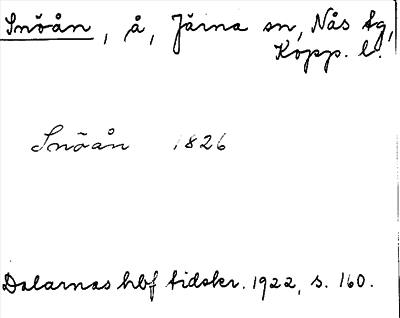 Snöån, å, Järna sn, Nås tg,
Kopp. l.
Snöån 1826
Dalarnas hbf tidskr. 1922, s. 160.